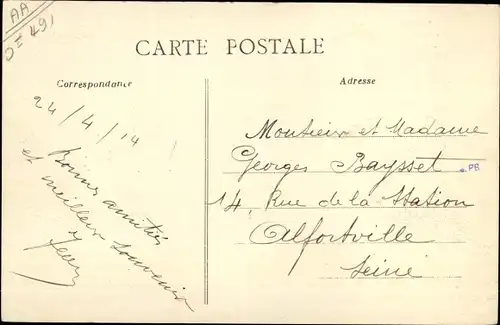 AA
CARTE POSTALE
Correspondance
Adresse
24/4/14
Bonnes amitiés
et meilleur souvenir
Monsieur et Madame
Georges Baysset
PB
14, Rue de la Station
Alfortville
Seine